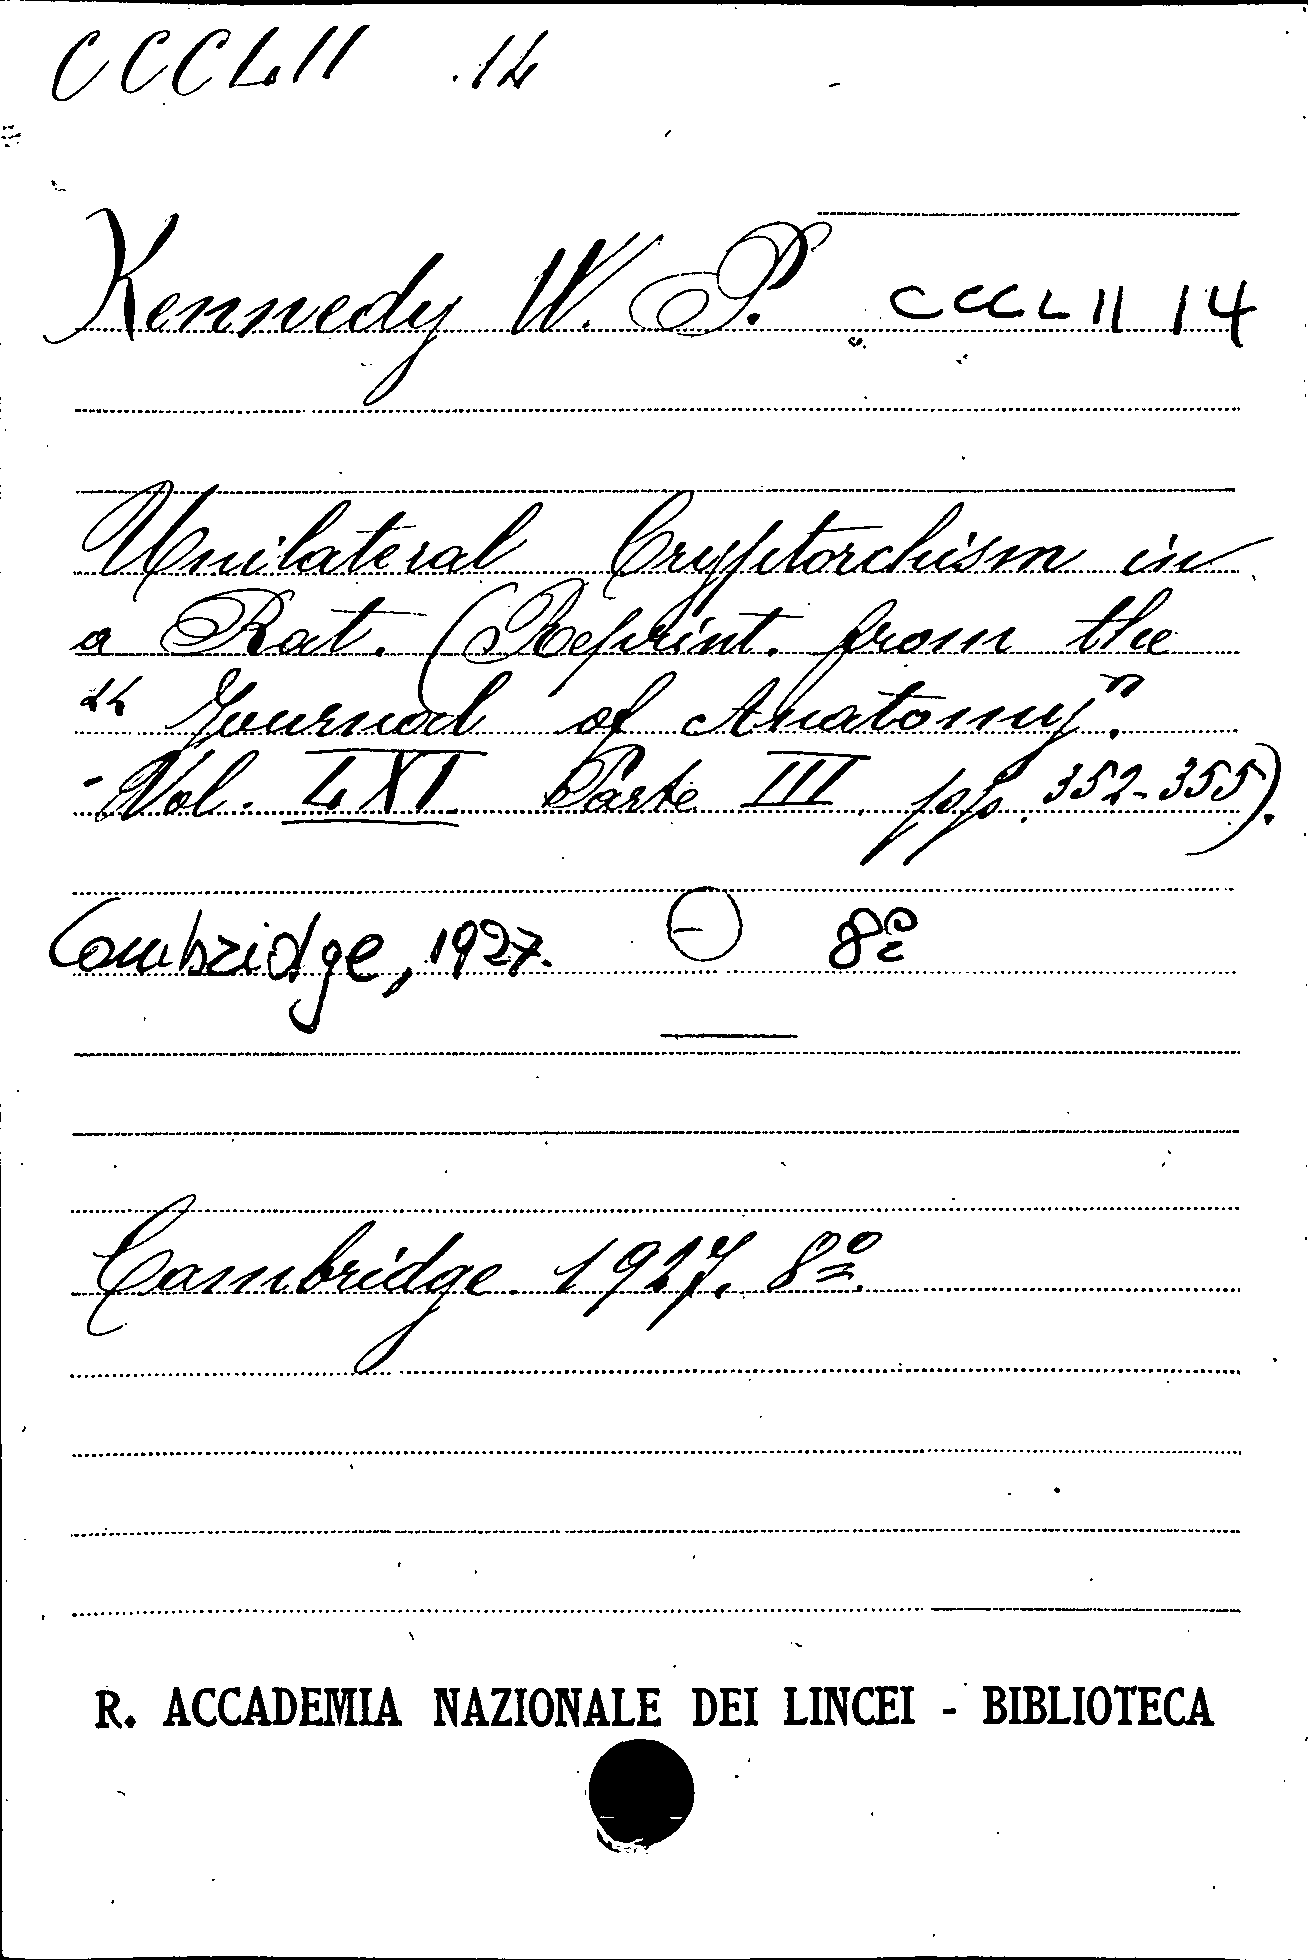 CCCLII .14
Kennedy W. P. CCCLII 14
Unilateral Cryptorchism in
a Rat. (Reprint. from the
"Journal of Anatomy".
- Vol. LXI. Parte III. pp. 352-355).
Cambridge, 1927. 8º
Cambridge. 1927. 8º.
R. ACCADEMIA NAZIONALE DEI LINCEI - BIBLIOTECA